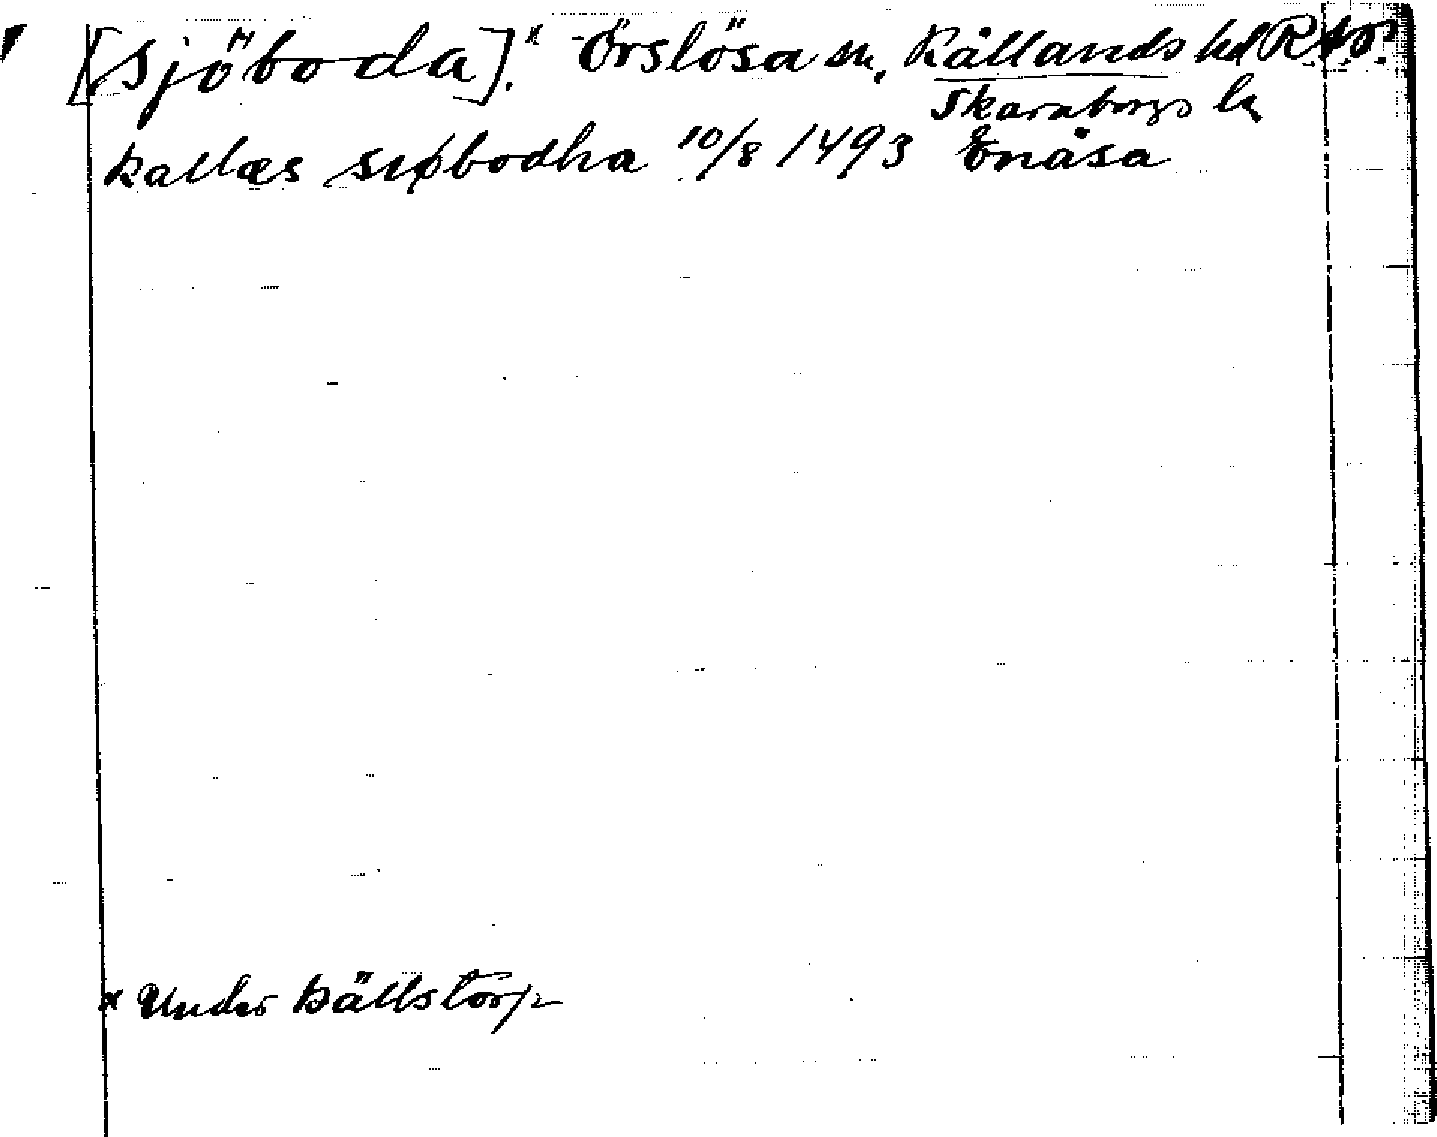 [Sjöboda].x Örslösa sn, Kållands hd
Skaraborgs l.
kallæs siøbodha 10/8 1493 Enåsa
x Under Källstorp